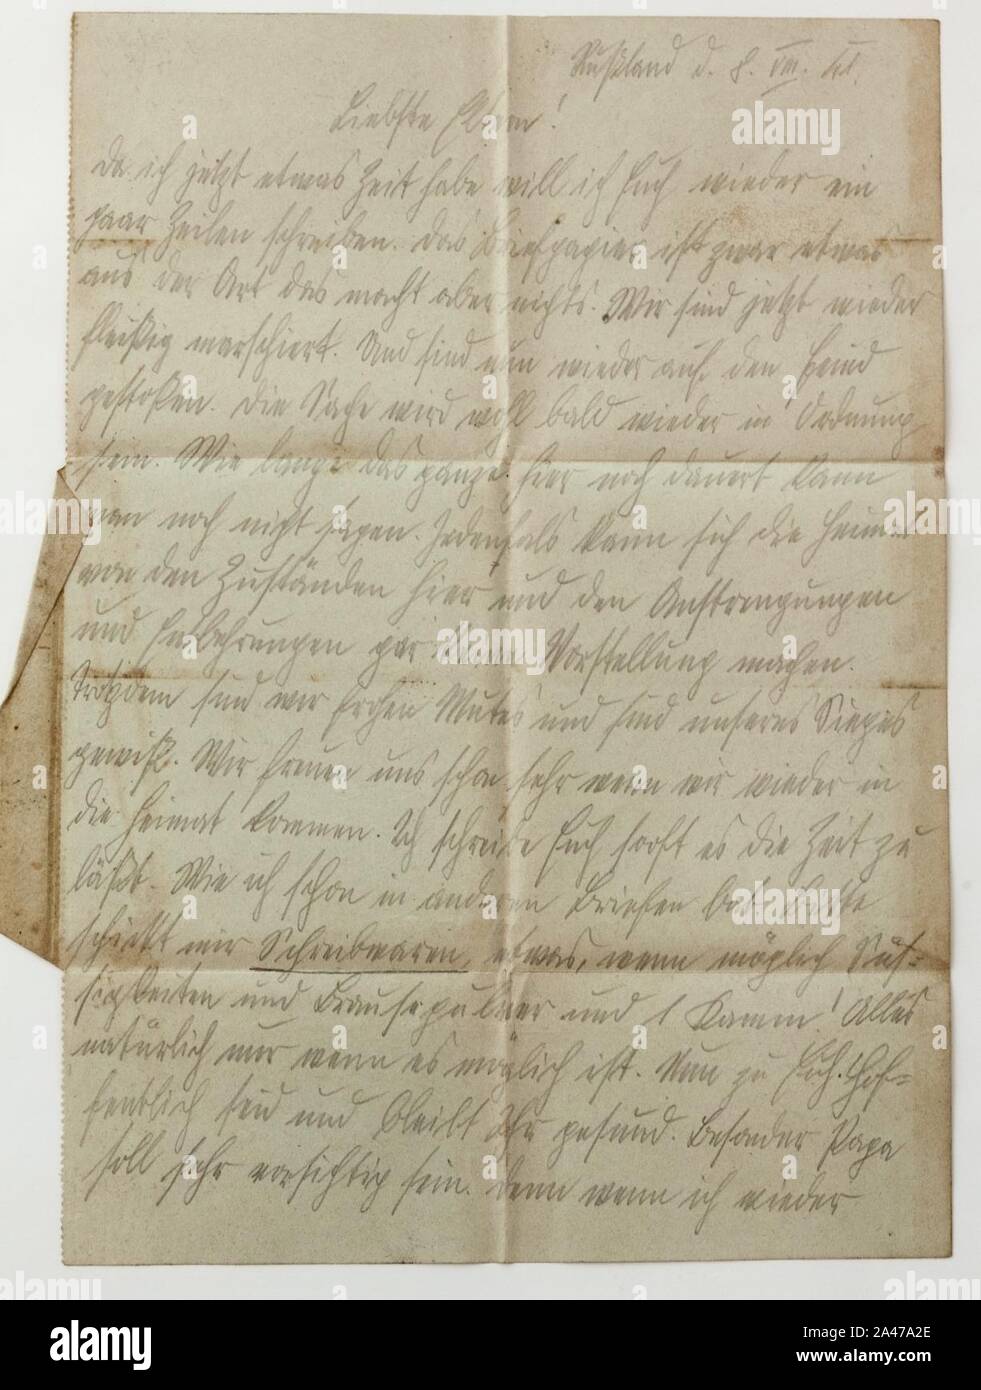 Rußland d. 8. VIII. 41.
Liebste Eltern!
Da ich jetzt etwas Zeit habe will ich Euch wieder ein
paar Zeilen schreiben. Das Briefpapier ist zwar etwas
aus der Art das macht aber nichts. Wir sind jetzt wieder
fleißig marschiert. Und sind nun wieder auf den Feind
gestoßen. Die Sache wird wohl bald wieder in Ordnung
sein. Wie lange das ganze hier noch dauert kann
man noch nicht sagen. Jedenfals kann sich die Heimat
von den Zuständen hier und den Anstrengungen
und Entbehrungen gar keine Vorstellung machen.
Trotzdem sind wir frohen Mutes und sind unseres Sieges
gewiß. Wir freuen uns schon sehr wenn wir wieder in
die Heimat kommen. Ich schreibe Euch sooft es die Zeit zu
läßt. Wie ich schon in anderen Briefen bat bitte
schickt mir Schreibwaren, etwas, wenn möglich Süs-
sigkeiten und Brausepulver und 1 Kamm! Alles
natürlich nur wenn es möglich ist. Nun zu Euch. Hof-
fentlich seid und bleibt Ihr gesund. Besonder Papa
soll sehr vorsichtig sein. Denn wenn ich wieder
alamy
Image ID: 2A47A2E
www.alamy.com